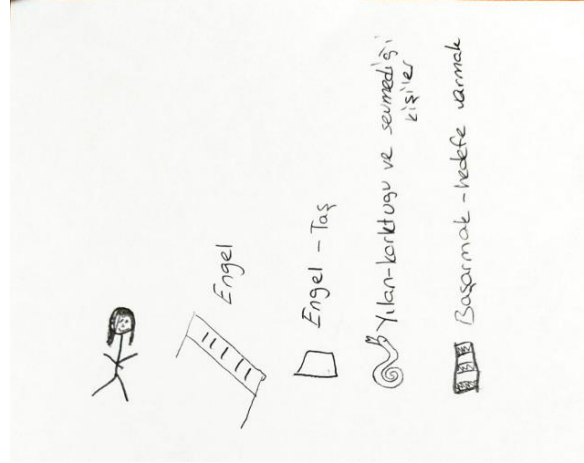 Engel
Engel - Taş
Yılan-korktugu ve sevmediği
kişiler
Başarmak - hedefe varmak